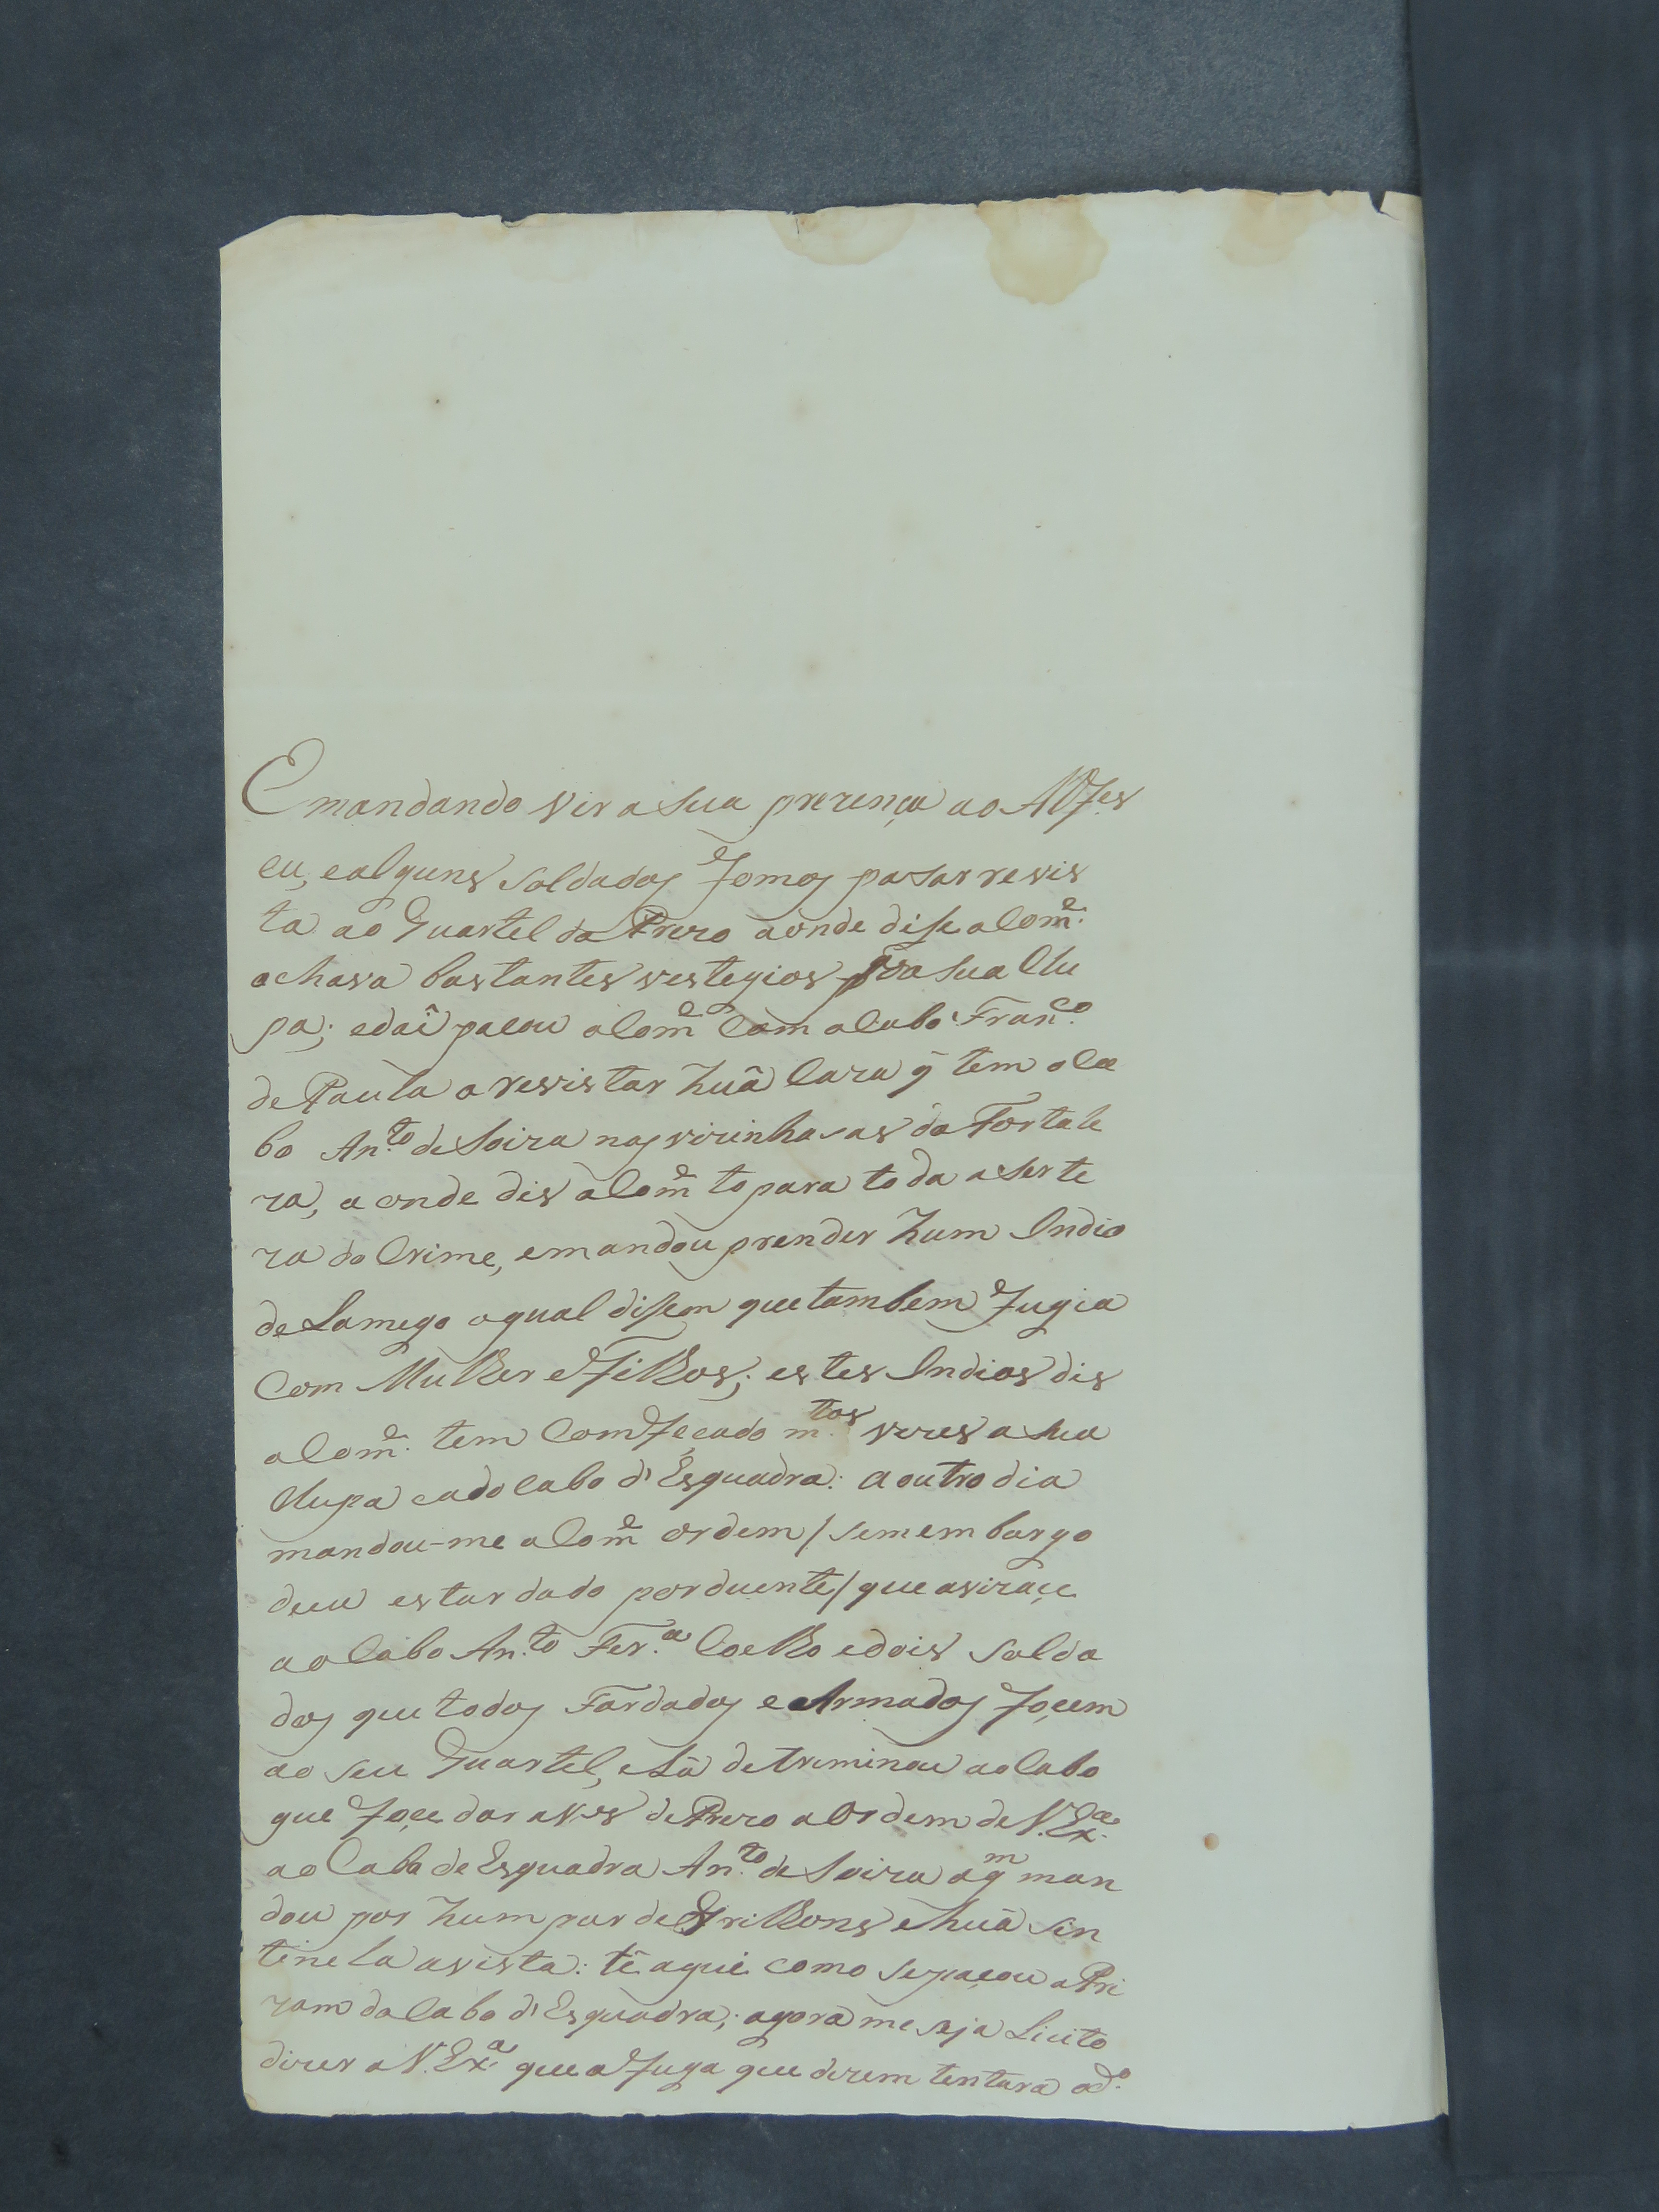 E mandando vir a sua prezença ao Alfes
eu, e alguns soldados fomos pasar revis
ta ao Quartel do Prezo aonde dise o Com.e
achava bastantes vestegios da sua Cul
pa; e daî paçou o Com.e com o Cabo Fran.co
de Paula a revistar huã Caza q̃ tem o Ca
bo An.to de Soiza nas vizinhasas da Fortale
za, a onde dis o Com.e topara toda a serte
za do Crime, e mandou prender hum Indio
de Lamego o qual disem que tambem fugia
Com Mulher e filhos; estes Indios dis
o Com.e tem Comfeçado m.tos vezes a sua
Culpa e a do Cabo d'Esquadra: a outro dia
mandou-me o Com.e ordem / sem embargo
deeu estar dado por duente / que avizaçe
ao Cabo An.to Fer.a Coelho e dois Solda
dos que todos Fardados e Armados foçem
ao seu Quartel, e Lâ detriminou ao Cabo
que foçe dar a vos de Prezo a Ordem de V. Ex.a
ao Cabo de Esquadra An.to de Soiza o q.m man
dou por hum par de Grilhons e huã sin
tinela a vista: tê aqui como se paçou a Pri
zam do Cabo d'Esquadra; agora me seja Licito
dizer a V. Ex.a que a fuga que dizem tentava o d.o